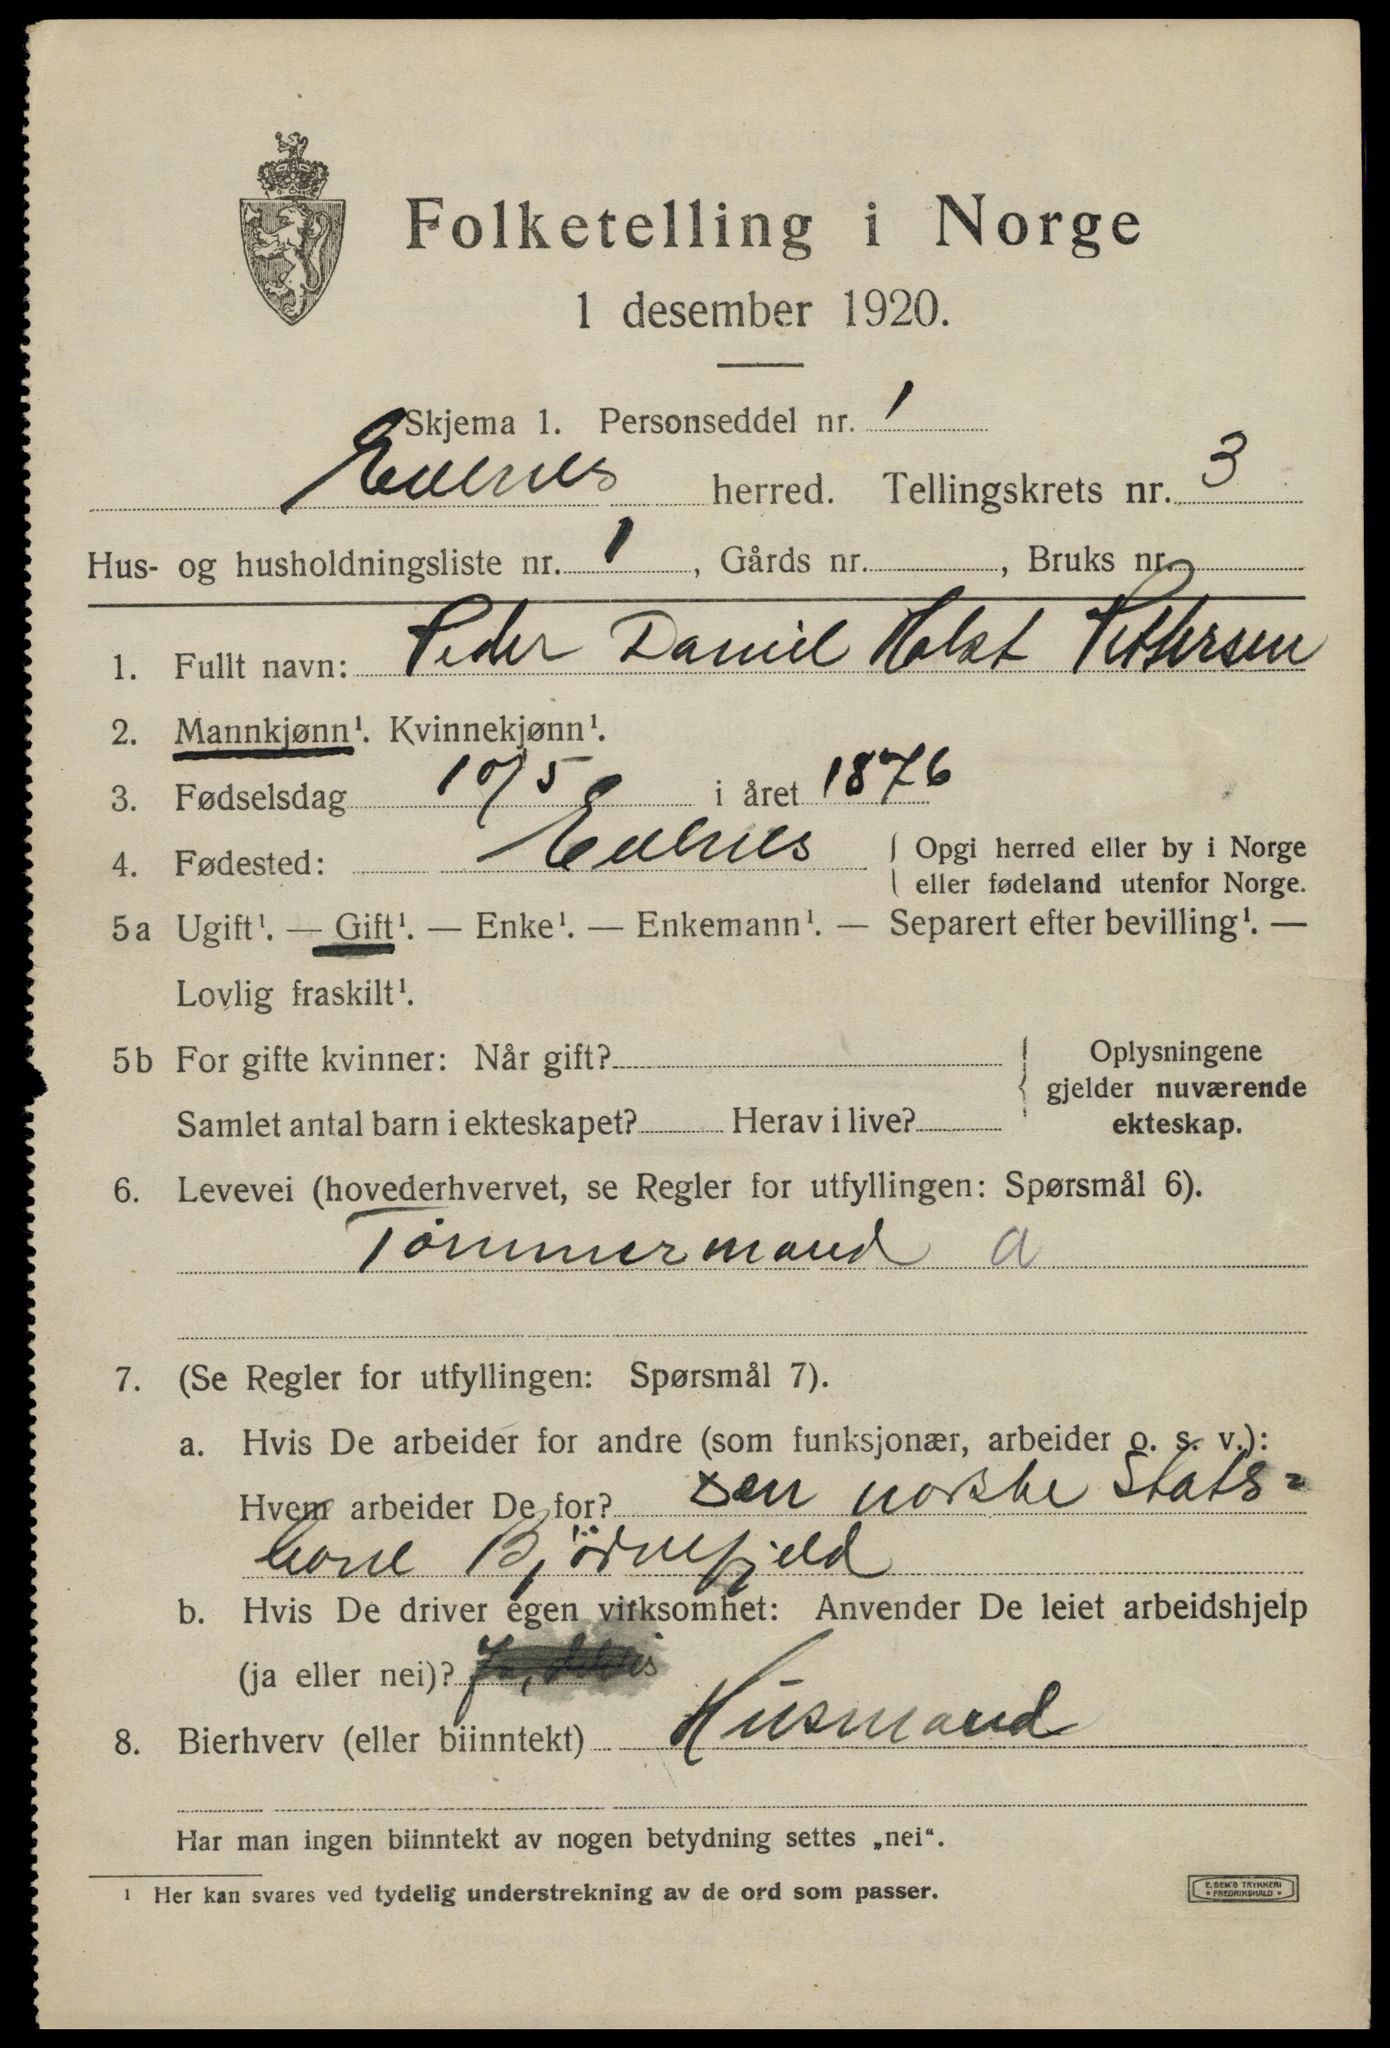 Folketelling i Norge
1 desember 1920.
Skjema 1. Personseddel nr. 1
Evenes herred. Tellingskrets nr. 3
Hus- og husholdningsliste nr. 1, Gårds nr. , Bruks nr.
1. Fullt navn: Peder Daniel Holst Pettersen
2. Mannkjønn¹. Kvinnekjønn¹.
3. Fødselsdag 10/5 i året 1876
4. Fødested: Evenes { Opgi herred eller by i Norge
eller fødeland utenfor Norge.
5a Ugift¹. — Gift¹. — Enke¹. — Enkemann¹. — Separert efter bevilling¹. —
Lovlig fraskilt¹.
5b For gifte kvinner: Når gift? { Oplysningene
gjelder nuværende
Samlet antal barn i ekteskapet? Herav i live? ekteskap.
6. Levevei (hovederhvervet, se Regler for utfyllingen: Spørsmål 6).
Tömmermand a
7. (Se Regler for utfyllingen: Spørsmål 7).
a. Hvis De arbeider for andre (som funksjonær, arbeider o. s. v.):
Hvem arbeider De for? Den norske Stats=
bane Bjørnefjeld
b. Hvis De driver egen virksomhet: Anvender De leiet arbeidshjelp
(ja eller nei)? Ja,
8. Bierhverv (eller biinntekt) Husmand
Har man ingen biinntekt av nogen betydning settes „nei“.
¹ Her kan svares ved tydelig understrekning av de ord som passer.
E. SEM'S TRYKKERI
• FREDRIKSHALD •